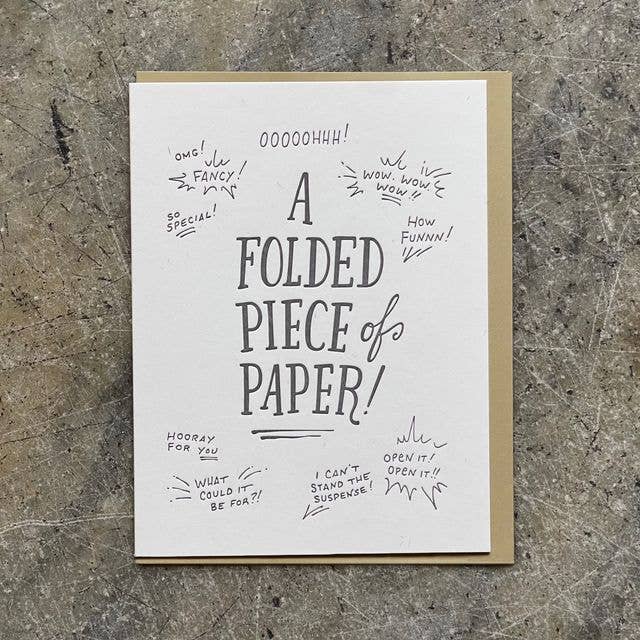 OOOOOHHH!
OMG!
FANCY!
WOW. WOW.
WOW!!
SO
SPECIAL!
HOW
FUNNN!
A
FOLDED
PIECE of
PAPER!
HOORAY
FOR YOU
WHAT
COULD IT
BE FOR?!
I CAN'T
STAND THE
SUSPENSE!
OPEN IT!
OPEN IT!!